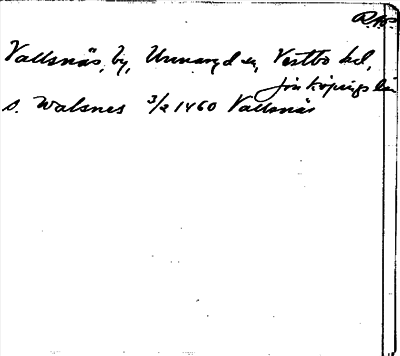 RAp.
Vallsnäs, by, Unnaryd sn, Västbo hd,
Jönköpings län
s. Walsnes 3/2 1460 Vallsnäs